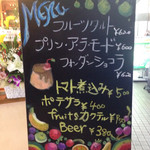 Menu
フルーツサルド ¥600
プリン・アラ・モード ¥600
フォンダンショコラ
トマト煮込み ¥500
ポテサラ ¥400
fruitsカクテル ¥600
Beer ¥380